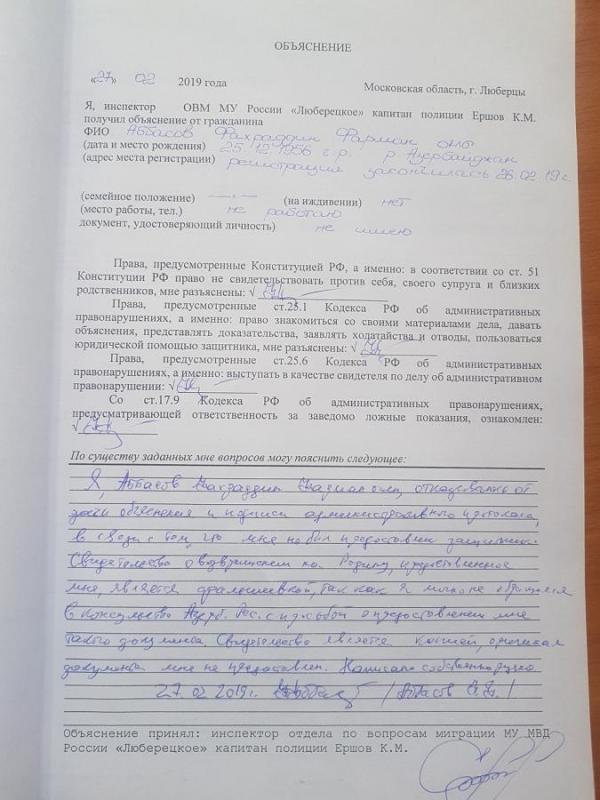 ОБЪЯСНЕНИЕ
«27» 02 2019 года Московская область, г. Люберцы
Я, инспектор ОВМ МУ России «Люберецкое» капитан полиции Ершов К.М.
получил объяснение от гражданина
ФИО Аббасов Фахраддин Фарман оглы
(дата и место рождения) 25.12.1956 г.р. р. Азербайджан
(адрес места регистрации) регистрация закончилась 26.02.19 г.
(семейное положение) (на иждивении) нет
(место работы, тел.) не работаю
документ, удостоверяющий личность) не имею
Права, предусмотренные Конституцией РФ, а именно: в соответствии со ст. 51
Конституции РФ право не свидетельствовать против себя, своего супруга и близких
родственников, мне разъяснены: √
Права, предусмотренные ст.25.1 Кодекса РФ об административных
правонарушениях, а именно: право знакомиться со своими материалами дела, давать
объяснения, представлять доказательства, заявлять ходатайства и отводы, пользоваться
юридической помощью защитника, мне разъяснены: √
Права, предусмотренные ст.25.6 Кодекса РФ об административных
правонарушениях, а именно: выступать в качестве свидетеля по делу об административном
правонарушении: √
Со ст.17.9 Кодекса РФ об административных правонарушениях,
предусматривающей ответственность за заведомо ложные показания, ознакомлен:
√
По существу заданных мне вопросов могу пояснить следующее:
Я, Аббасов Фахраддин оглы, отказываюсь от
дачи объяснения и подписи административного протокола,
в связи с тем, что мне не был предоставлен защитник.
Свидетельство о возвращении на Родину, предоставленное
мне, является фальшивкой, так как я лично не обращался
в консульство Азерб. Рес. с просьбой о предоставлении мне
такого документа. Свидетельство является копией, оригинал
документа мне не предоставлен. Написано собственноручно
27.02.2019г. /Аббасов Ф.Ф./
Объяснение принял: инспектор отдела по вопросам миграции МУ МВД
России «Люберецкое» капитан полиции Ершов К.М.